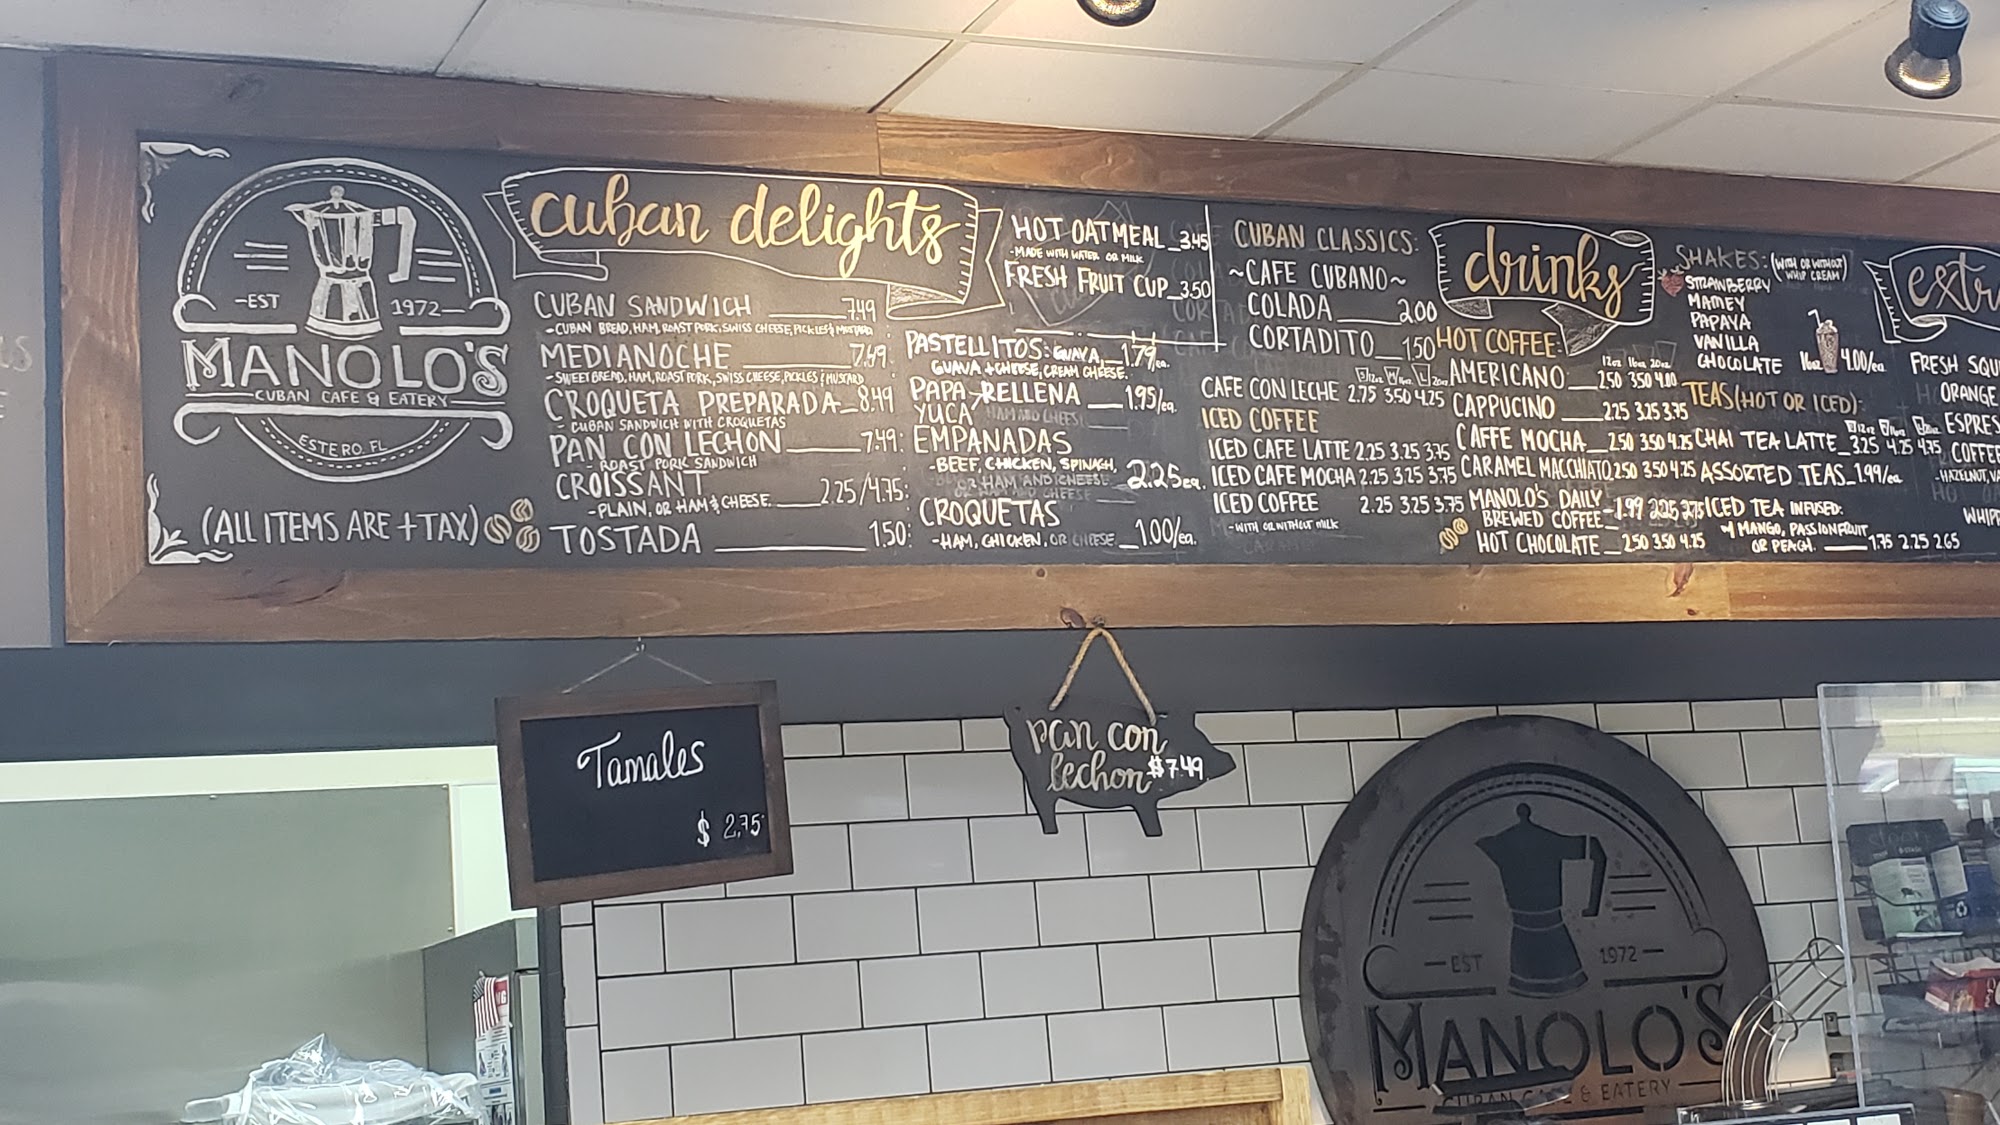 EST 1972
MANOLO'S
CUBAN CAFE & EATERY
ESTERO, FL
(ALL ITEMS ARE + TAX)
cuban delights
CUBAN SANDWICH 7.49
-CUBAN BREAD, HAM, ROAST PORK, SWISS CHEESE, PICKLES & MUSTARD
MEDIANOCHE 7.49:
-SWEET BREAD, HAM, ROAST PORK, SWISS CHEESE, PICKLES & MUSTARD
CROQUETA PREPARADA 8.49
- CUBAN SANDWICH WITH CROQUETAS
PAN CON LECHON 7.49:
- ROAST PORK SANDWICH
CROISSANT
-PLAIN, OR HAM & CHEESE 2.25/4.75:
TOSTADA 1.50:
HOT OATMEAL 3.45
-MADE WITH WATER OR MILK
FRESH FRUIT CUP 3.50
PASTELLITOS: GUAVA, 1.79/ea.
GUAVA + CHEESE, CREAM CHEESE.
PAPA RELLENA 1.95/ea.
YUCA
EMPANADAS
-BEEF, CHICKEN, SPINACH, 2.25ea.
OR HAM AND CHEESE
CROQUETAS
-HAM, CHICKEN, OR CHEESE 1.00/ea.
CUBAN CLASSICS:
~CAFE CUBANO~
COLADA 2.00
CORTADITO 1.50
CAFE CON LECHE 2.75 3.50 4.25
ICED COFFEE
ICED CAFE LATTE 2.25 3.25 3.75
ICED CAFE MOCHA 2.25 3.25 3.75
ICED COFFEE 2.25 3.25 3.75
-WITH OR WITHOUT MILK
drinks
HOT COFFEE:
12oz 16oz 20oz
AMERICANO 2.50 3.50 4.00
CAPPUCINO 2.25 3.25 3.75
CAFFE MOCHA 2.50 3.50 4.25
CARAMEL MACCHIATO 2.50 3.50 4.25
MANOLO'S DAILY
BREWED COFFEE 1.99 2.25 2.75
HOT CHOCOLATE 2.50 3.50 4.25
SHAKES: (WITH OR WITHOUT WHIP CREAM)
STRAWBERRY
MAMEY
PAPAYA
VANILLA
CHOCOLATE 16oz 4.00/ea
TEAS (HOT OR ICED):
CHAI TEA LATTE 3.25 4.25 4.75
ASSORTED TEAS 1.99/ea
ICED TEA INFUSED:
MANGO, PASSIONFRUIT,
OR PEACH. 1.75 2.25 2.65
extr
FRESH SQU
ORANGE
ESPRES
COFFEE
-HAZELNUT, VA
WHIPP
Tamales
$ 2.75
pan con
lechon $7.49
EST 1972
MANOLO'S
CUBAN CAFE & EATERY